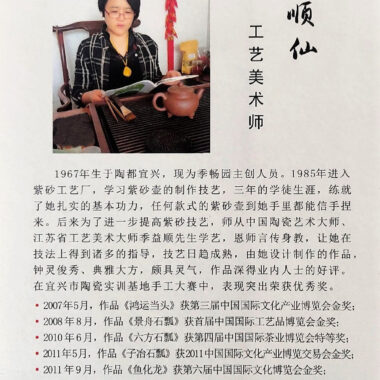 顺仙
工艺美术师
1967年生于陶都宜兴，现为季畅园主创人员。1985年进入
紫砂工艺厂，学习紫砂壶的制作技艺，三年的学徒生涯，练就
了她扎实的基本功力，任何款式的紫砂壶到她手里都能信手捏
来。后来为了进一步提高紫砂技艺，师从中国陶瓷艺术大师、
江苏省工艺美术大师季益顺先生学艺，恩师言传身教，让她在
技法上得到诸多的指导，技艺日趋成熟，由她设计制作的作品，
钟灵俊秀、典雅大方，颇具灵气，作品深得业内人士的好评。
在宜兴市陶瓷实训基地手工大赛中，表现突出荣获优秀奖。
• 2007年5月，作品《鸿运当头》获第三届中国国际文化产业博览会金奖；
• 2008年8月，作品《景舟石瓢》获首届中国国际工艺品博览会金奖；
• 2010年6月，作品《六方石瓢》获第四届中国国际茶业博览会特等奖；
• 2011年5月，作品《子冶石瓢》获2011中国国际文化产业博览交易会金奖；
• 2011年9月，作品《鱼化龙》获第六届中国国际文化博览会金奖；